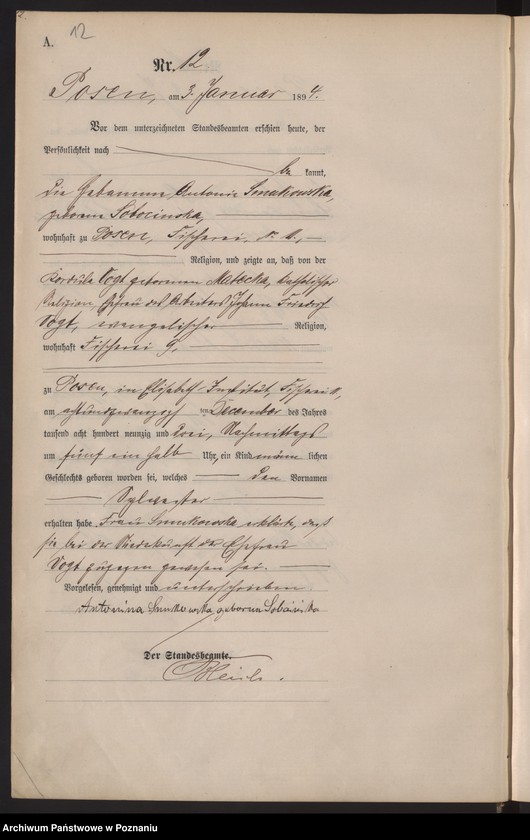 12
A.
Nr. 12
Posen, am 3. Januar 1894.
Vor dem unterzeichneten Standesbeamten erschien heute, der
Persönlichkeit nach
be kannt,
die Hebamme Antonie Smukowska,
geborene Sobocinska,
wohnhaft zu Posen, Fischerei
Religion, und zeigte an, daß von der
Kordula Vogt geborenen Matecka, katholischer
Religion, Ehefrau des Arbeiters Johann Friedrich
Vogt, evangelischer Religion,
wohnhaft Fischerei 9,
zu Posen, in Elisabeth Institut, Fischerei
am achtundzwanzigsten December des Jahres
tausend acht hundert neunzig und drei, Nachmittags
um fünf ein halb Uhr, ein Kind männ lichen
Geschlechts geboren worden sei, welches den Vornamen
Sylvester
erhalten habe. Frau Smukowska erklärte, daß
sie bei der Niederkunft der Ehefrau
Vogt zugegen gewesen sei.
Vorgelesen, genehmigt und unterschrieben
Antonina geborene
Der Standesbeamte.
Archiwum Państwowe w Poznaniu